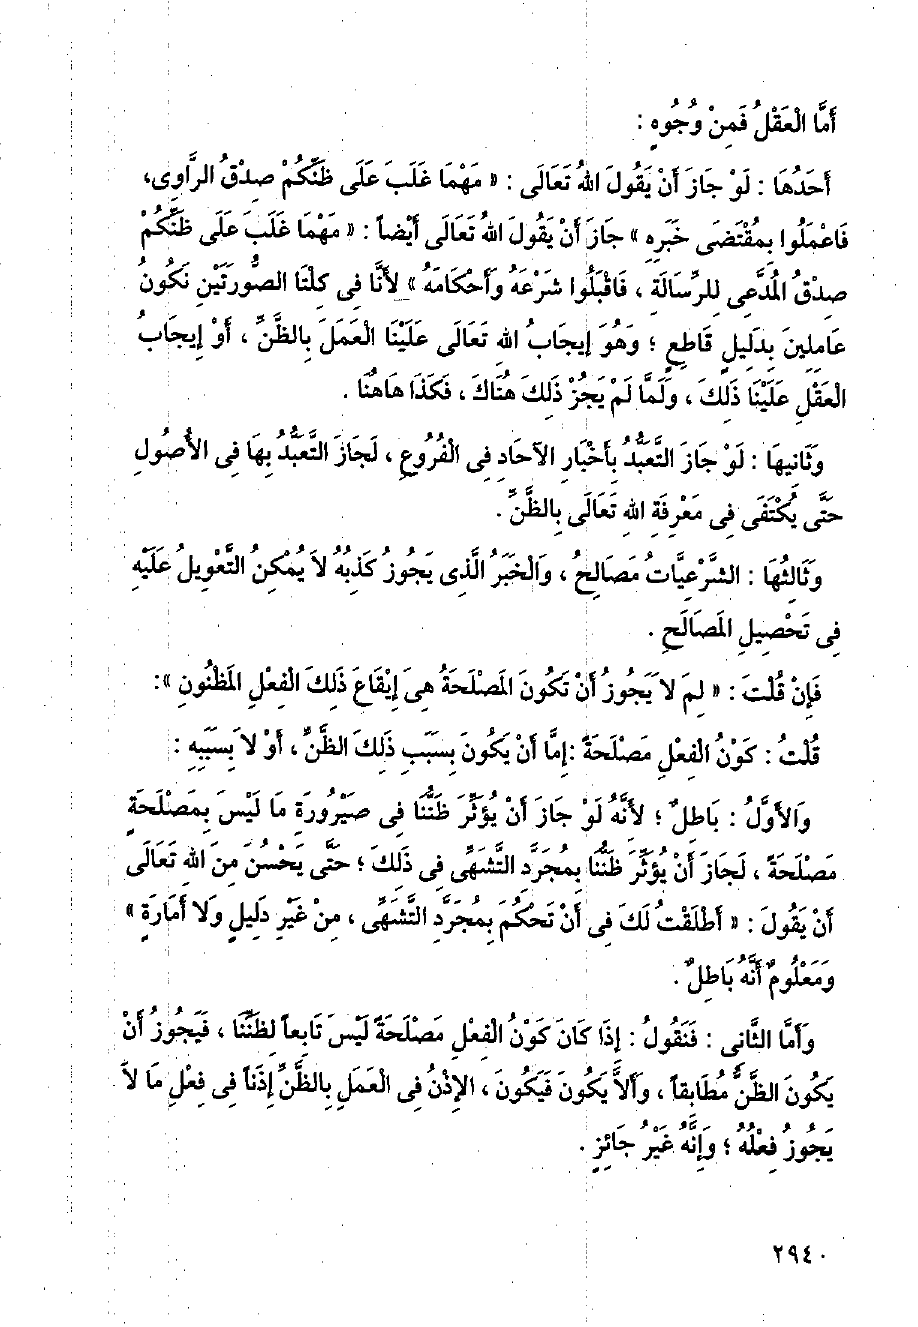 أَمَّا الْعَقْلُ فَمِنْ وُجُوهٍ :
أَحَدُهَا : لَوْ جَازَ أَنْ يَقُولَ اللهُ تَعَالَى : « مَهْمَا غَلَبَ عَلَى ظَنِّكُمْ صِدْقُ الرَّاوِى،
فَاعْمَلُوا بِمُقْتَضَى خَبَرِهِ » جَازَ أَنْ يَقُولَ اللهُ تَعَالَى أَيْضاً : « مَهْمَا غَلَبَ عَلَى ظَنِّكُمْ
صِدْقُ الْمُدَّعِى لِلرِّسَالَةِ ، فَاقْبَلُوا شَرْعَهُ وَأَحْكَامَهُ » لِأَنَّا فِى كِلْتَا الصُّورَتَيْنِ نَكُونُ
عَامِلِينَ بِدَلِيلٍ قَاطِعٍ ؛ وَهُوَ إِيجَابُ اللهِ تَعَالَى عَلَيْنَا الْعَمَلَ بِالظَّنِّ ، أَوْ إِيجَابُ
الْعَقْلِ عَلَيْنَا ذَلِكَ ، وَلَمَّا لَمْ يَجُزْ ذَلِكَ هُنَاكَ ، فَكَذَا هَاهُنَا .
وَثَانِيهَا : لَوْ جَازَ التَّعَبُّدُ بِأَخْبَارِ الآحَادِ فِى الْفُرُوعِ ، لَجَازَ التَّعَبُّدُ بِهَا فِى الأُصُولِ
حَتَّى يُكْتَفَى فِى مَعْرِفَةِ اللهِ تَعَالَى بِالظَّنِّ .
وَثَالِثُهَا : الشَّرْعِيَّاتُ مَصَالِحُ ، وَالْخَبَرُ الَّذِى يَجُوزُ كَذِبُهُ لاَ يُمْكِنُ التَّعْوِيلُ عَلَيْهِ
فِى تَحْصِيلِ الْمَصَالِحِ .
فَإِنْ قُلْتَ : « لِمَ لاَ يَجُوزُ أَنْ تَكُونَ الْمَصْلَحَةُ هِىَ إِيْقَاعَ ذَلِكَ الْفِعْلِ الْمَظْنُونِ »:
قُلْتُ : كَوْنُ الْفِعْلِ مَصْلَحَةً :إِمَّا أَنْ يَكُونَ بِسَبَبِ ذَلِكَ الظَّنِّ ، أَوْ لاَ بِسَبَبِهِ :
وَالأَوَّلُ : بَاطِلٌ ؛ لأَنَّهُ لَوْ جَازَ أَنْ يُؤَثِّرَ ظَنُّنَا فِى صَيْرُورَةِ مَا لَيْسَ بِمَصْلَحَةٍ
مَصْلَحَةً ، لَجَازَ أَنْ يُؤَثِّرَ ظَنُّنَا بِمُجَرَّدِ التَّشَهِّى فِى ذَلِكَ ؛ حَتَّى يَحْسُنَ مِنَ اللهِ تَعَالَى
أَنْ يَقُولَ : « أَطْلَقْتُ لَكَ فِى أَنْ تَحْكُمَ بِمُجَرَّدِ التَّشَهِّى ، مِنْ غَيْرِ دَلِيلٍ وَلاَ أَمَارَةٍ »
وَمَعْلُومٌ أَنَّهُ بَاطِلٌ .
وَأَمَّا الثَّانِى : فَنَقُولُ : إِذَا كَانَ كَوْنُ الْفِعْلِ مَصْلَحَةً لَيْسَ تَابِعاً لِظَنِّنَا ، فَيَجُوزُ أَنْ
يَكُونَ الظَّنُّ مُطَابِقاً ، وَأَلاَّ يَكُونَ فَيَكُونَ ، الإِذْنُ فِى الْعَمَلِ بِالظَّنِّ إِذْناً فِى فِعْلِ مَا لاَ
يَجُوزُ فِعْلُهُ ؛ وَإِنَّهُ غَيْرُ جَائِزٍ .
٢٩٤٠